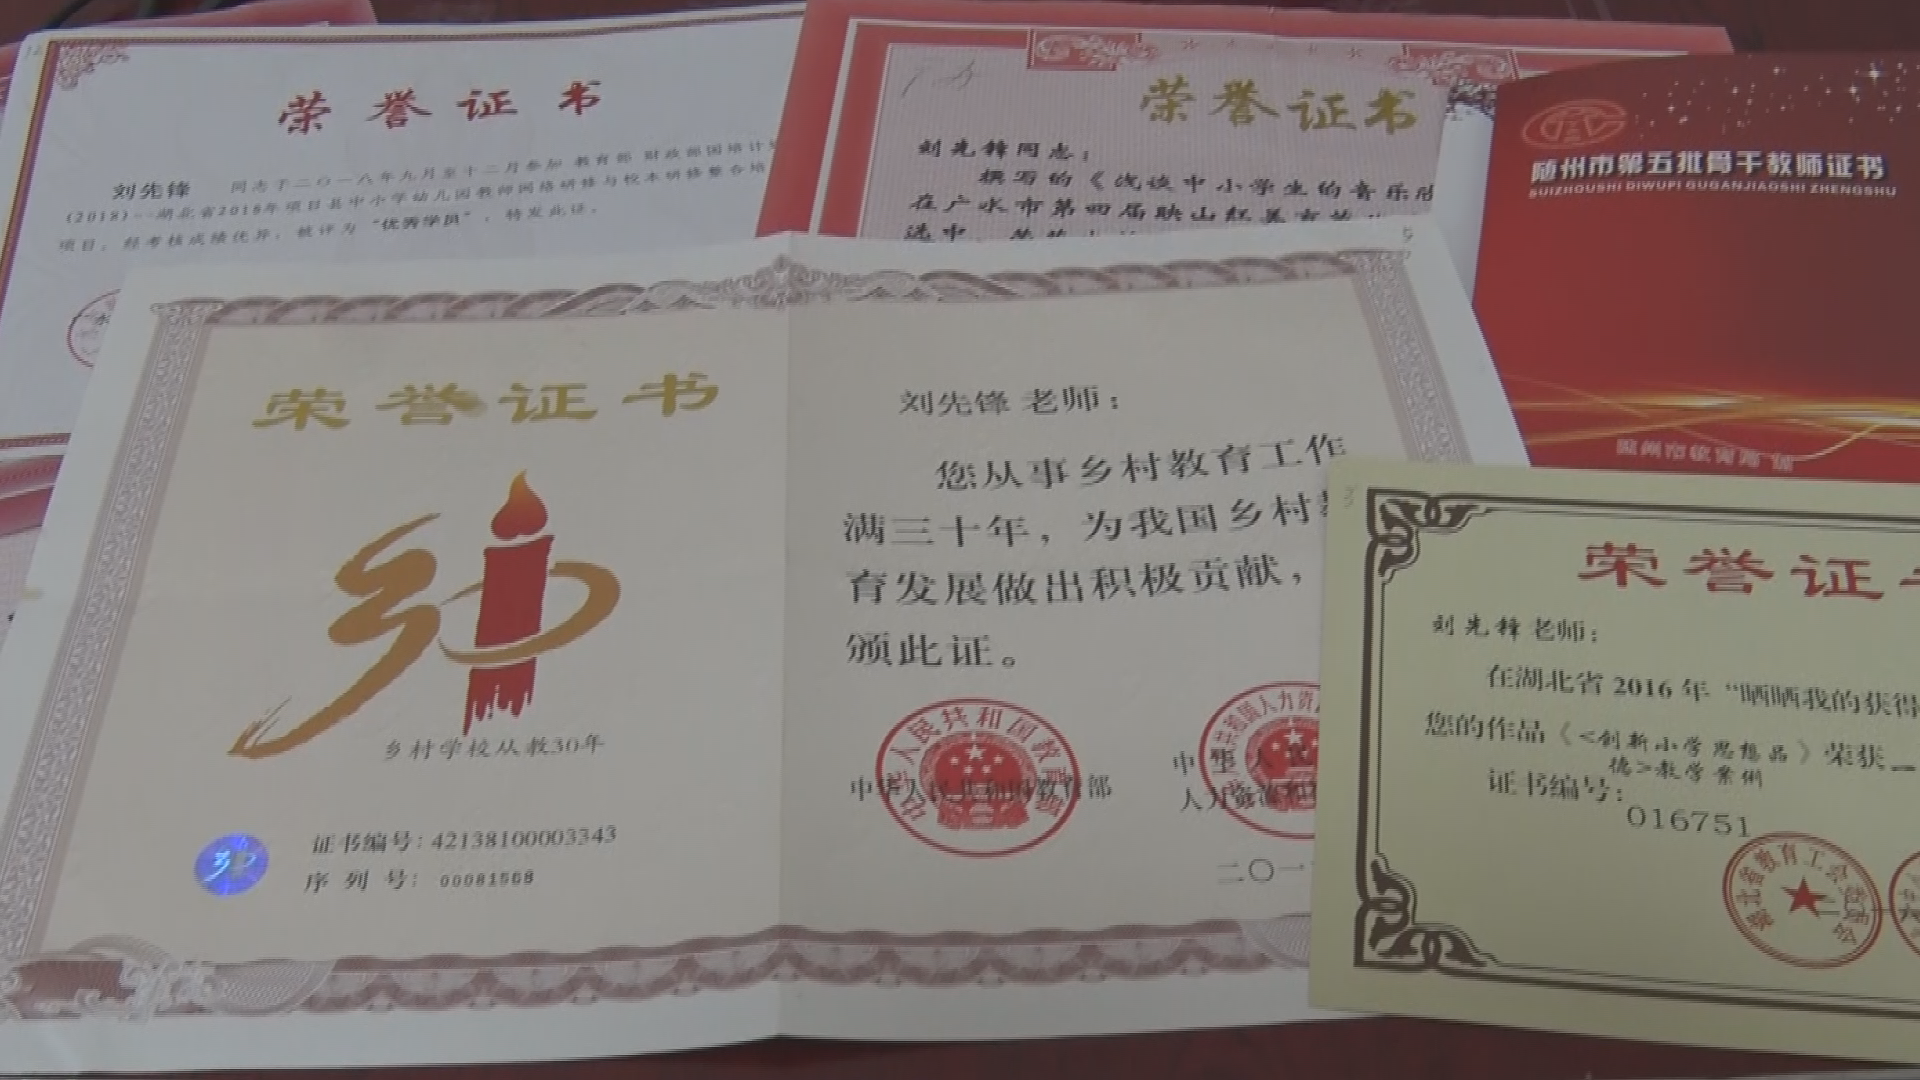 荣誉证书
刘先锋 同志于二〇一八年九月至十二月参加 教育部 财政部国培计划
(2018)--湖北省2018年项目县中小学幼儿园教师网络研修与校本研修整合培
项目，经考核成绩优异，被评为“优秀学员”，特发此证。
荣誉证书
刘先锋同志：
撰写的《浅谈中小学生的音乐欣
在广水市第四届映山红美育
选中
随州市第五批骨干教师证书
SUIZHOUSHI DIWUPI GUGANJIAOSHI ZHENGSHU
随州市教育局 制
荣誉证书
乡村学校从教30年
证书编号：42138100003343
序列号：00081568
刘先锋 老师：
您从事乡村教育工作
满三十年，为我国乡村教
育发展做出积极贡献，
颁此证。
中华人民共和国教育部
中华人民共和国教育部
中华人民
人力资源和
二〇一
荣誉证
刘先锋老师：
在湖北省2016年“晒晒我的获得
您的作品《<创新小学思想品
德>教学案例》荣获
证书编号：
016751
湖北省教育工会委员会